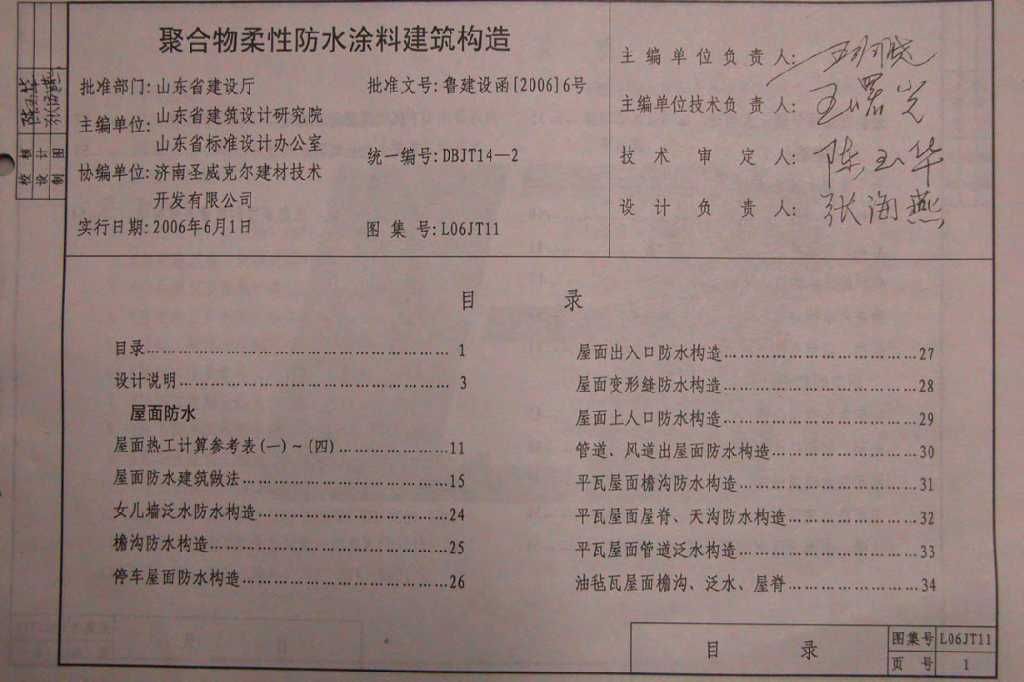 聚合物柔性防水涂料建筑构造
批准部门:山东省建设厅
批准文号:鲁建设函[2006]6号
主编单位:山东省建筑设计研究院
山东省标准设计办公室
统一编号:DBJT14—2
协编单位:济南圣威克尔建材技术
开发有限公司
实行日期:2006年6月1日
图集号:L06JT11
主编单位负责人:
主编单位技术负责人:王曙光
技术审定人:陈玉华
设计负责人:张海燕
校核
设计
制图
目录
目录……………………………………1
设计说明………………………………3
屋面防水
屋面热工计算参考表(一)~(四)……………11
屋面防水建筑做法………………………15
女儿墙泛水防水构造……………………24
檐沟防水构造……………………………25
停车屋面防水构造………………………26
屋面出入口防水构造……………………27
屋面变形缝防水构造……………………28
屋面上人口防水构造……………………29
管道、风道出屋面防水构造………………30
平瓦屋面檐沟防水构造…………………31
平瓦屋面屋脊、天沟防水构造……………32
平瓦屋面管道泛水构造…………………33
油毡瓦屋面檐沟、泛水、屋脊……………34
目录
图集号 L06JT11
页号 1